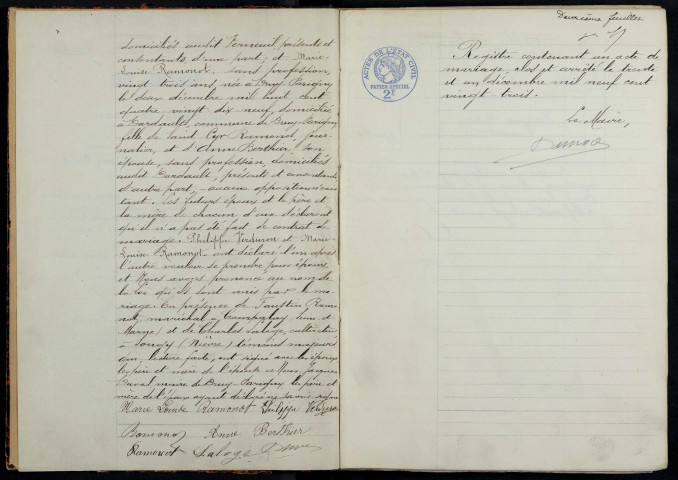 domiciliés audit Verneuil, présents et
consentants d'une part; et Marie
Louise Ramonot, sans profession,
vingt trois ans, née à Druy-Parigny
le deux décembre mil huit cent
quatre vingt dix neuf, domiciliée
à Gardault, commune de Druy-Parigny
fille de Saint Cyr Ramonot, jour-
nalier, et d'Anne Berthier son
épouse, sans profession, domiciliés
audit Gardault, présents et consentants
d'autre part; aucune opposition n'exis-
tant. Les futurs époux et le père et
la mère de chacun d'eux déclarent
qu'il n'a pas été fait de contrat de
mariage. Philippe Verduron et Marie
Louise Ramonot ont déclaré l'un après
l'autre vouloir se prendre pour époux,
et Nous avons prononcé au nom de
la loi qu'ils sont unis par le ma-
riage. En présence de Faustin Ramo-
not, maréchal à Champigny (Seine et
Marne) et de Charles Laloge, cultivateur
à Sougy (Nièvre) témoins majeurs
qui, lecture faite, ont signé avec les époux
les père et mère de l'épouse et Nous, Jacques
maire de Druy-Parigny, les père et
mère de l'époux ayant déclaré ne savoir signer
Marie Louise Ramonot Philippe
Ramonot Anne Berthier
Ramonot Laloge
Deuxième feuillet
ACTES DE L'ÉTAT CIVIL
PAPIER SPÉCIAL
2F
Registre contenant un acte de
mariage, clos et arrêté le trente
et un décembre mil neuf cent
vingt-trois.
Le Maire,